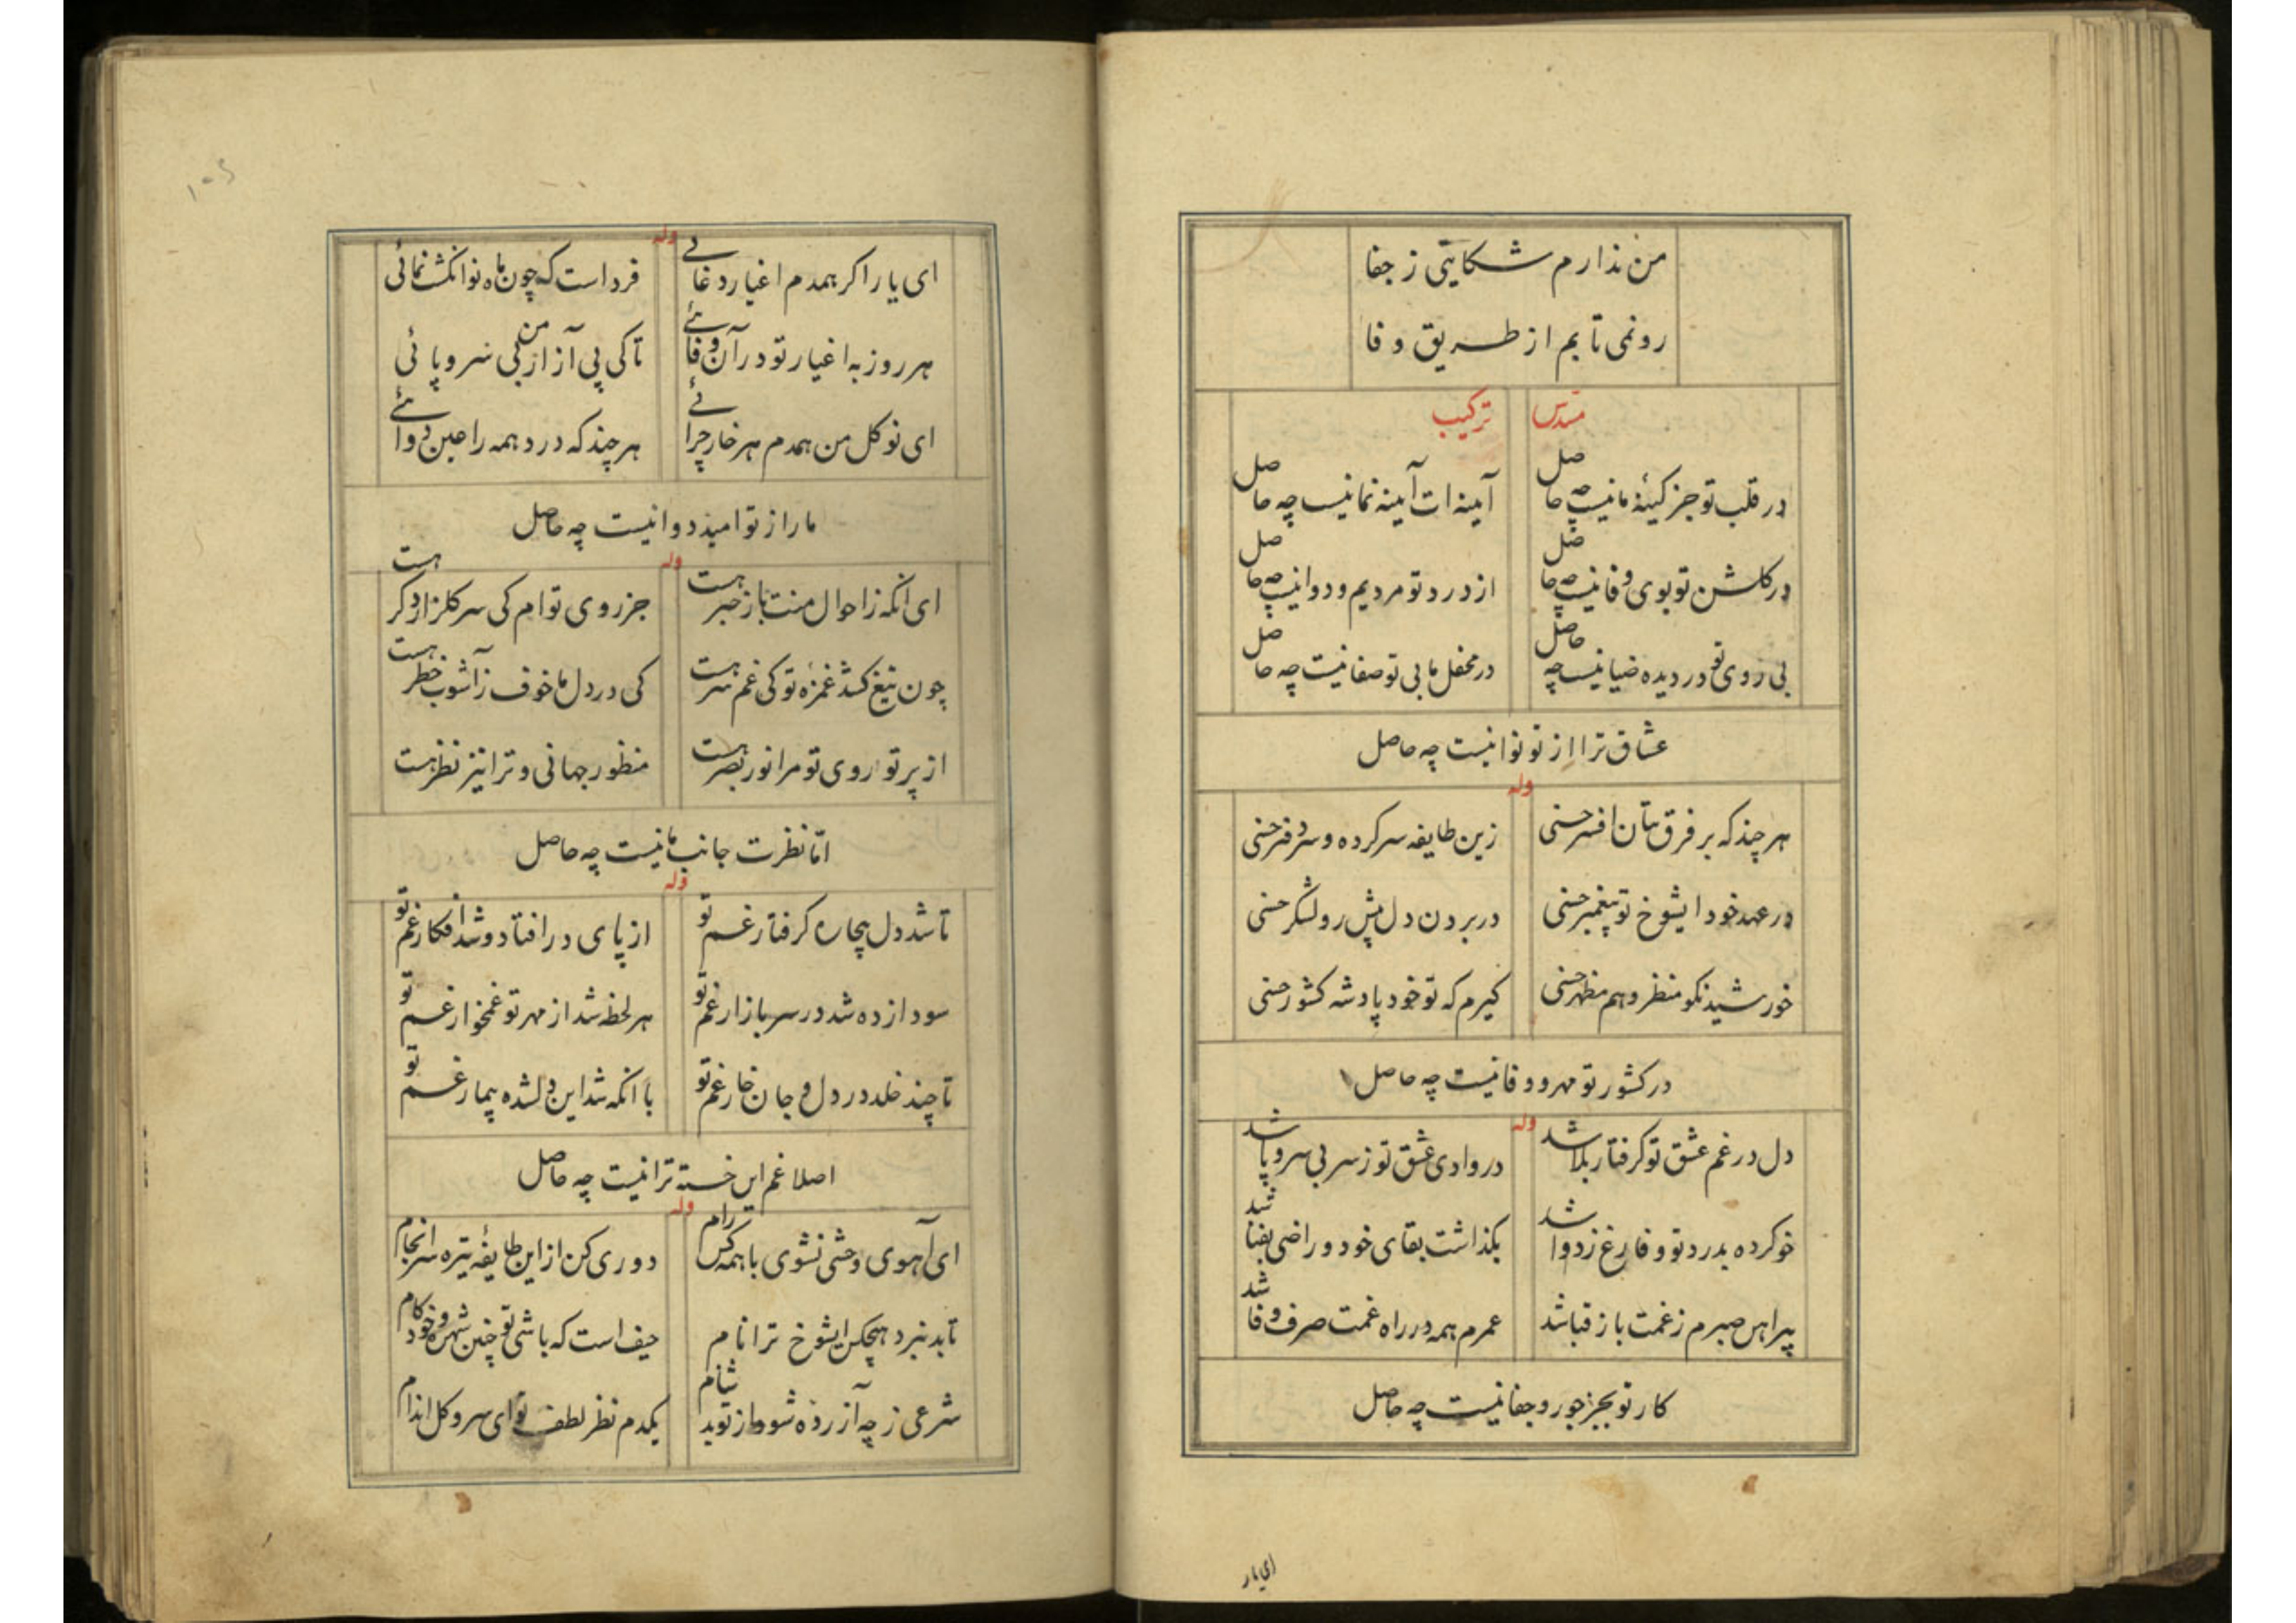 من ندارم شکایتی ز جفا
رو نمی تابم از طریق وفا
مسدس ترکیب
در قلب تو جز کینهٔ ما نیست چه حاصل آیینه ات آیینه نما نیست چه حاصل
در کلشن تو بوی وفا نیست چه حاصل از درد تو مردیم و دوا نیست چه حاصل
بی روی تو در دیده ضیا نیست چه حاصل در محفل ما بی تو صفا نیست چه حاصل
عشاق ترا از تو نوا نیست چه حاصل
وله
هر چند که بر فرق بتان افسر حسنی زین طایفه سر کرده و سر دفتر حسنی
در عهد خود ایشوخ تو پیغمبر حسنی در بردن دل پیش رو لشکر حسنی
خورشید نکو منظر و هم مظهر حسنی کیرم که تو خود پادشه کشور حسنی
در کشور تو مهر و وفا نیست چه حاصل
وله
دل در غم عشق تو کرفتار بلا شد در وادی عشق تو ز سر بی سر و پا شد
خو کرده بدرد تو و فارغ ز دوا شد بکذاشت بقای خود و راضی بفنا شد
پیراهن صبرم ز غمت باز قبا شد عمرم همه در راه غمت صرف وفا شد
کار تو بجز جور و جفا نیست چه حاصل
ای یار
وله
ای یار اکر همدم اغیار دغائے فرداست که چون ماه نو انکشت نمائی
هر روز به اغیار تو در آن وفائے تا کی پی آزار من بی سر و پائی
ای نو کل من همدم هر خار چرائے هر چند که درد همه را عین دوائے
ما را ز تو امید دوا نیست چه حاصل
وله
ای آنکه ز احوال منت باز خبر هست جز روی توام کی سر کلزار دکر هست
چون تیغ کشد غمزه تو کی غم سر هست کی در دل ما خوف ز آشوب خطر هست
از پرتو روی تو مرا نور بصر هست منظور جهانی و ترا نیز نظر هست
امّا نظرت جانب ما نیست چه حاصل
وله
تا شد دل بیچاره کرفتار غم تو از پای در افتاد و شد افکار غم تو
سودا زده شد در سر بازار غم تو هر لحظه شد از مهر تو غمخوار غم تو
تا چند خلد در دل و جان خار غم تو با آنکه شد این دلشده بیمار غم تو
اصلا غم این خسته ترا نیست چه حاصل
وله
ای آهوی وحشی نشوی با همه کس رام دوری کن از این طایفهٔ تیره سرانجام
تا بد نبرد هیچکس ایشوخ ترا نام حیف است که باشی تو چنین شهره و خود کام
شرعی ز چه آزرده شود از تو بدشنام یکدم نظر لطف تو ای سرو کل اندام